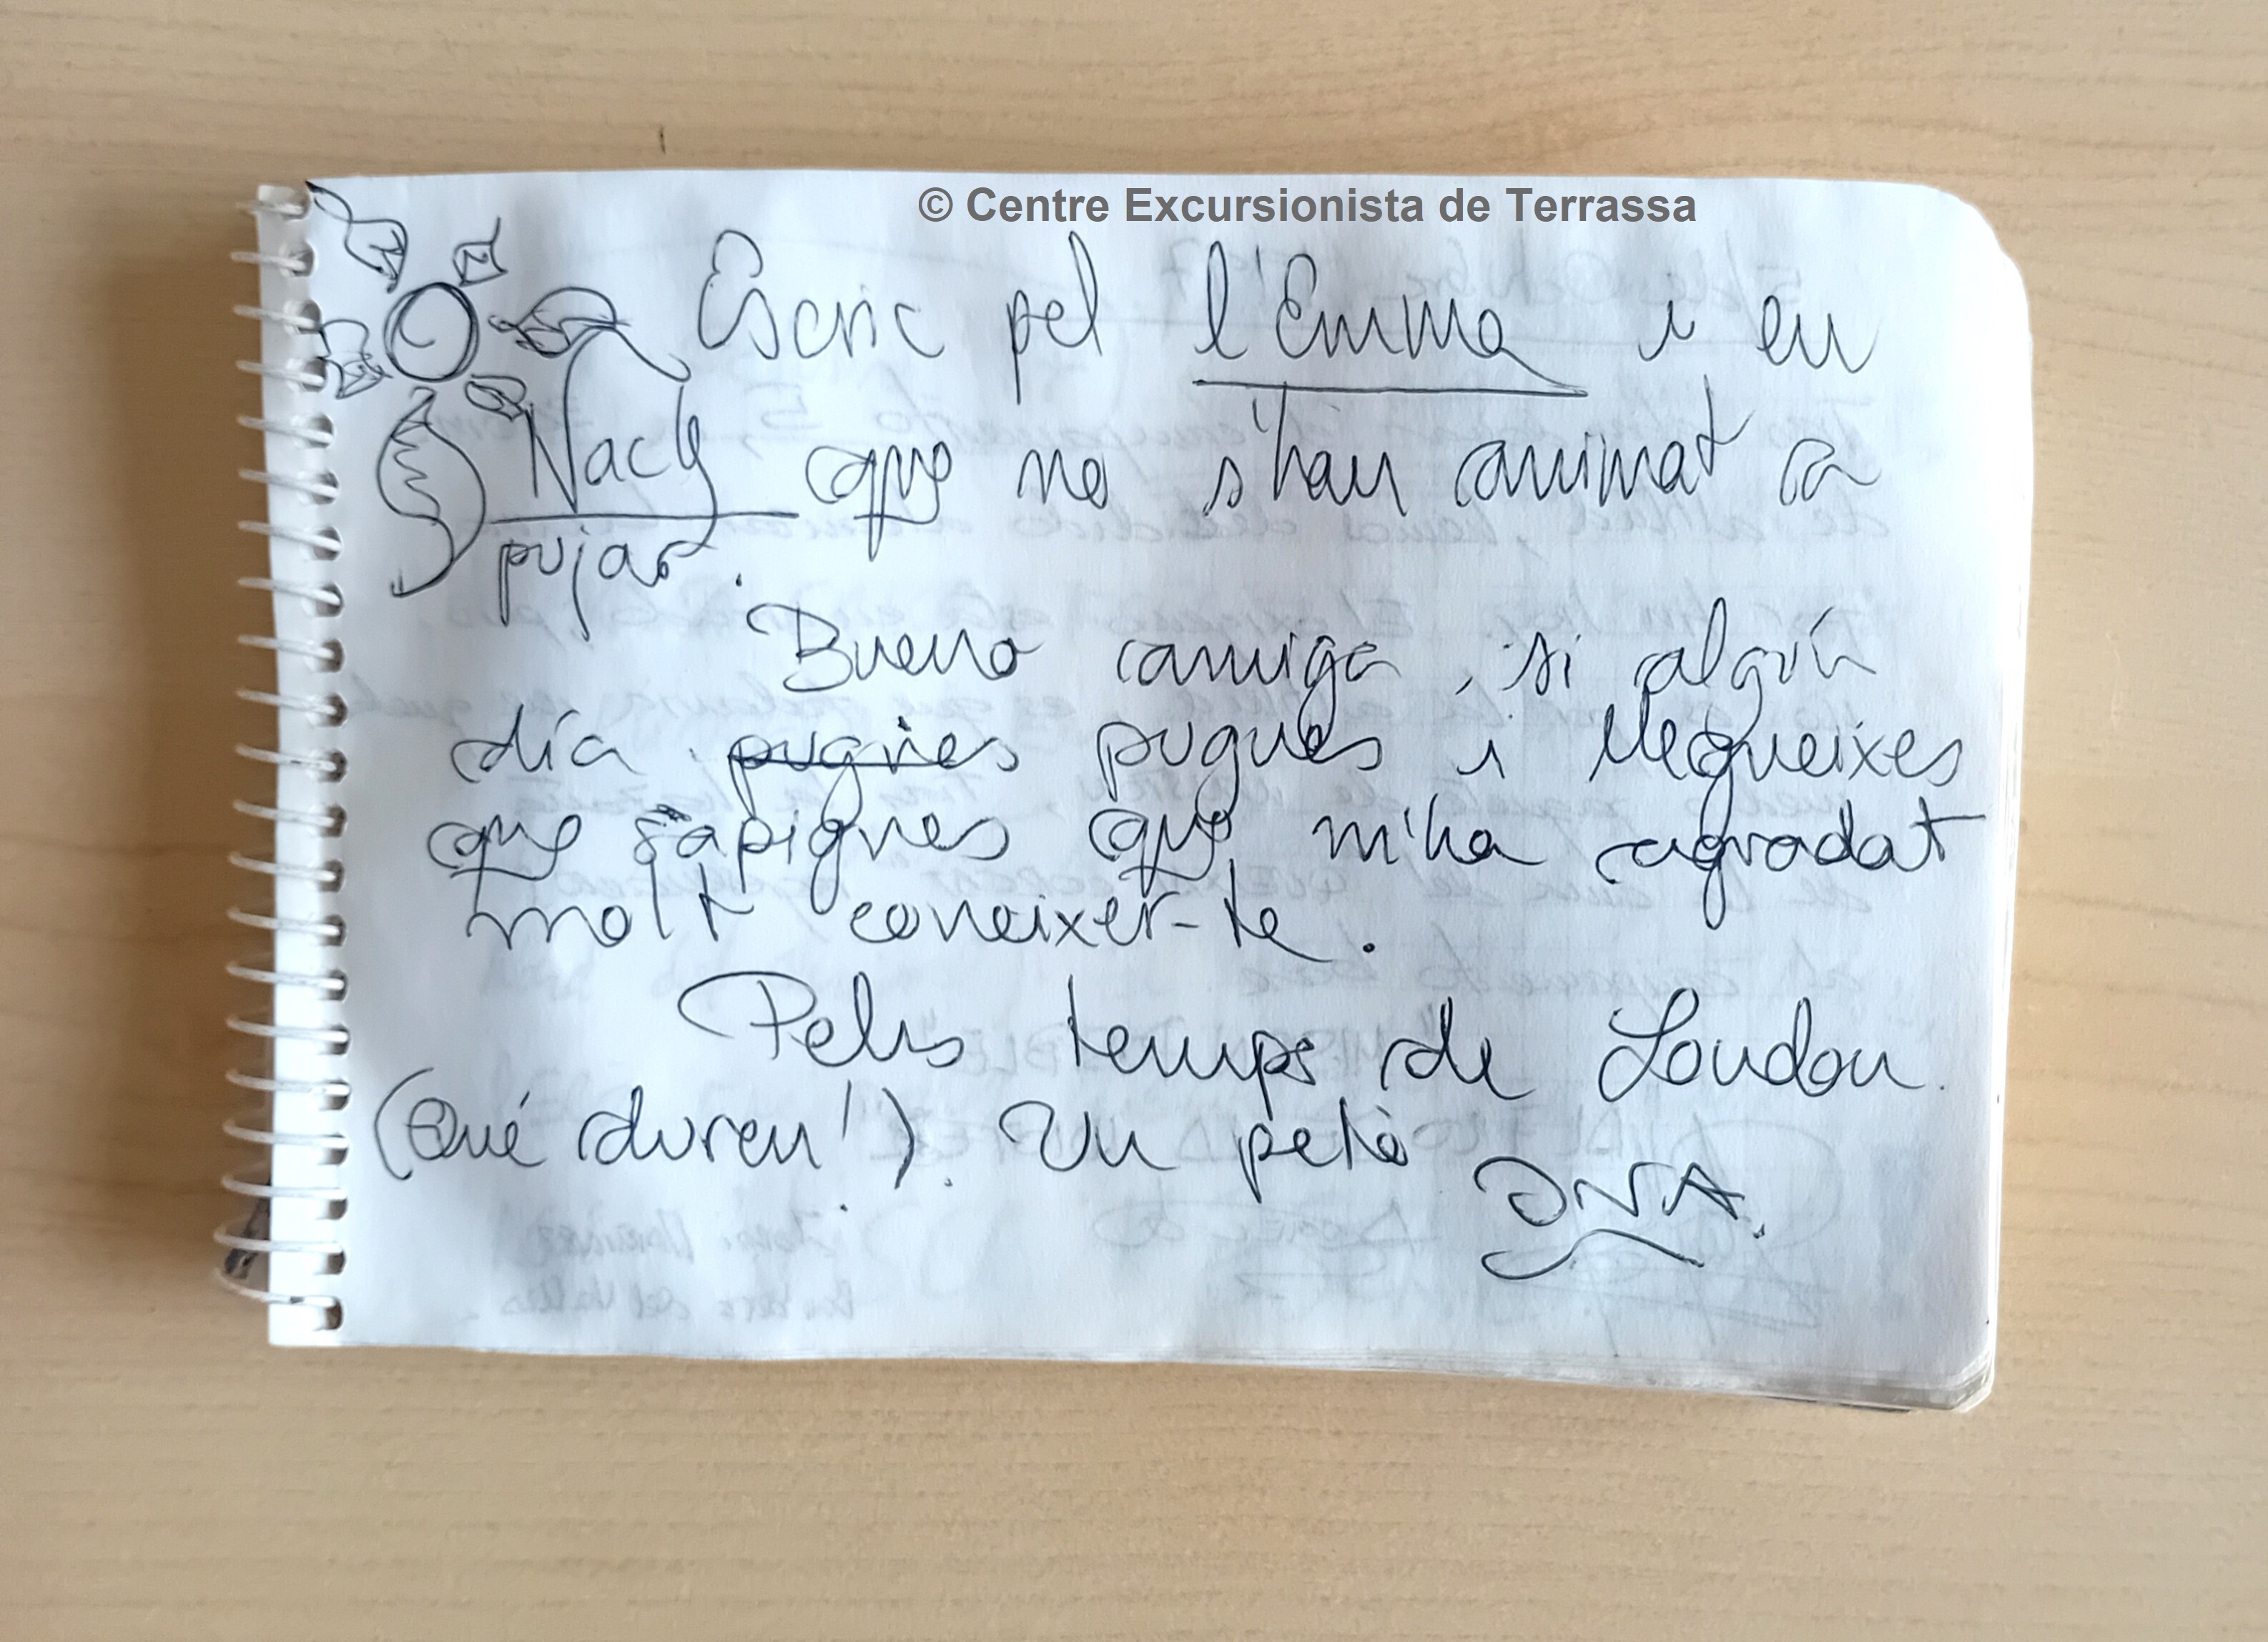 © Centre Excursionista de Terrassa
Escric pel l'Emma i en
Nacly que no s'han animat a
pujar.
Bueno amiga, si algún
día pugues pugues i llegueixes
que sapigues que m'ha agradat
molt coneixer-te.
Pels temps de London.
(Qué duren!). Un petó
ONA.